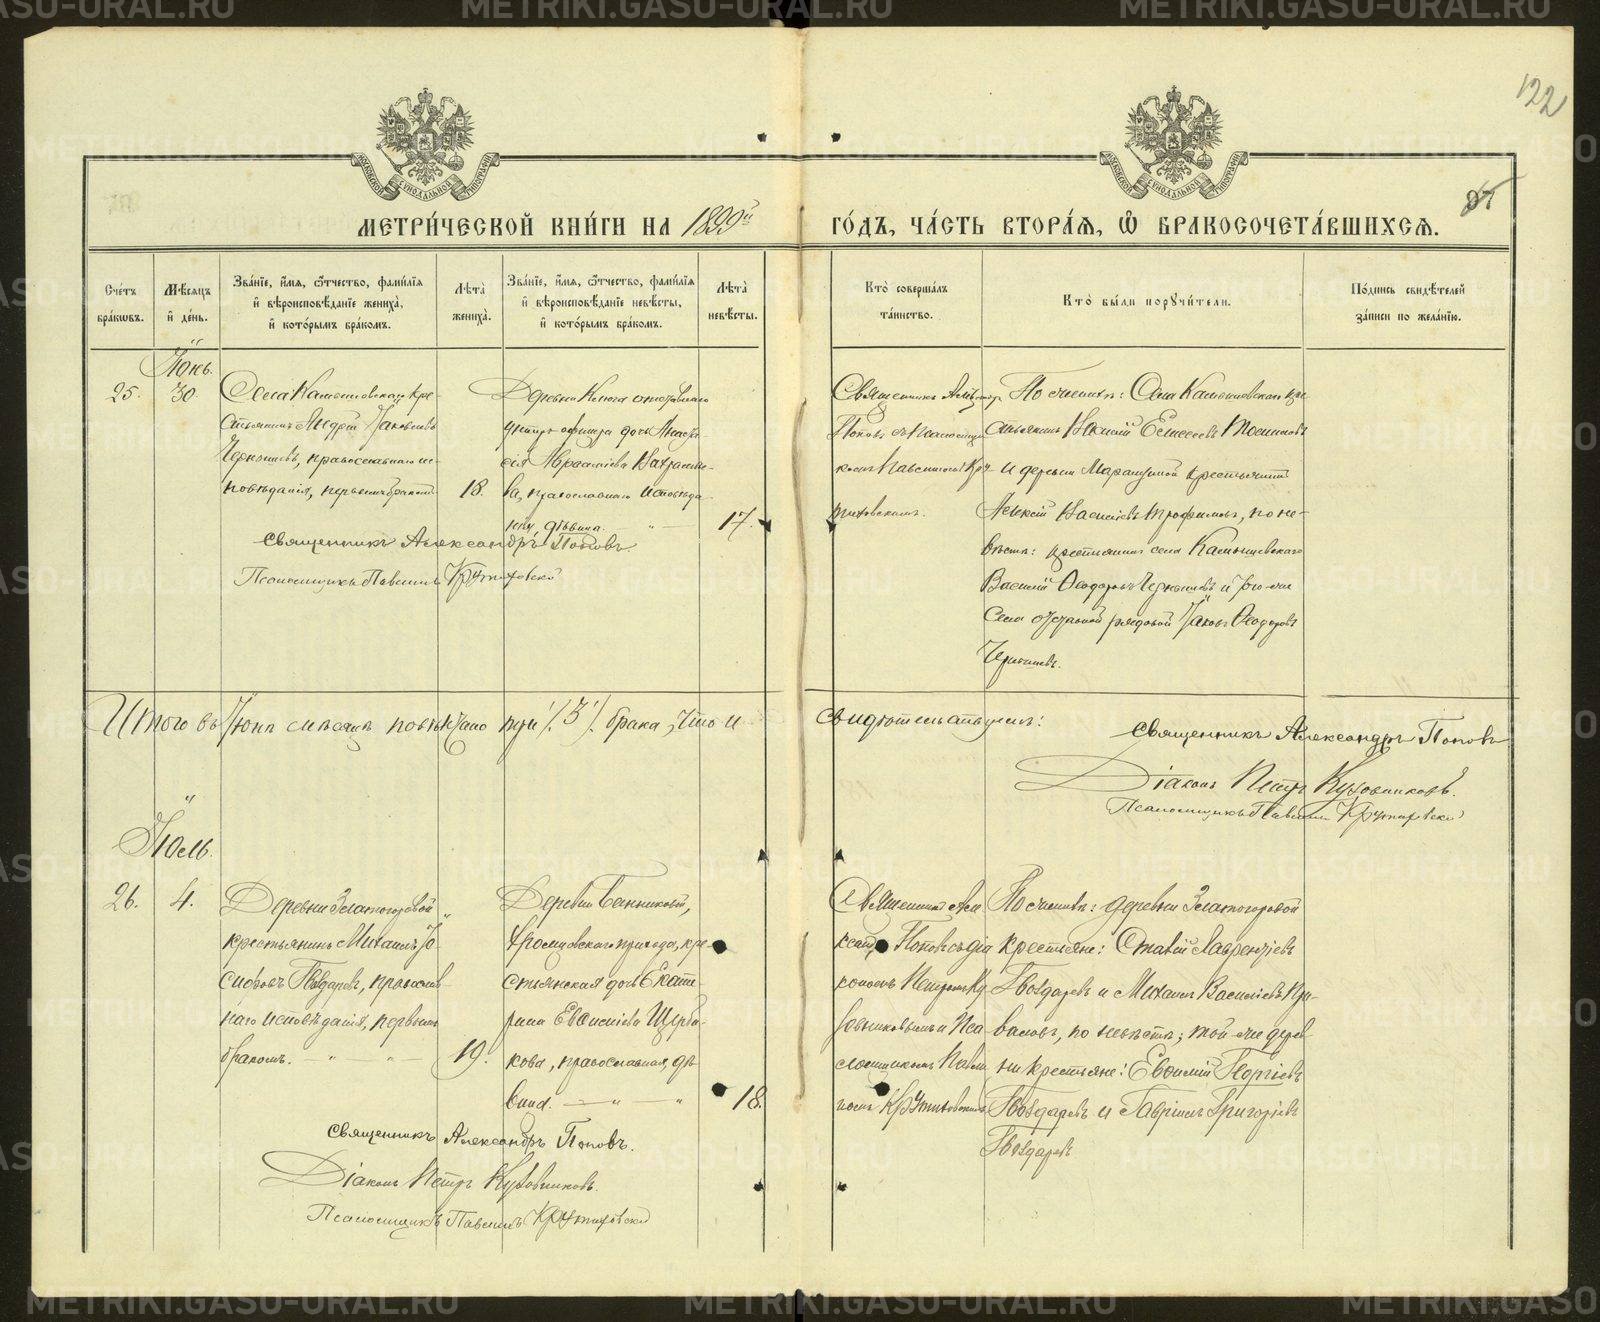 122
МЕТРИ́ЧЕСКОЙ КНИ́ГИ НА 1899й ГО́ДЪ, ЧА́СТЬ ВТОРА́Я, Ѿ БРАКОСОЧЕТА́ВШИХСЯ.
Сче́тъ бра́ковъ.
Мѣ́сяцъ и де́нь.
Зва́нїе, и́мя, о́тчество, фами́лїя и вѣроисповѣ́данїе жениха́, и кото́рымъ бра́комъ.
Лѣта̀ жениха̀.
Зва́нїе, и́мя, о́тчество, фами́лїя и вѣроисповѣ́данїе невѣ́сты, и кото́рымъ бра́комъ.
Лѣта̀ невѣ́сты.
Кто̀ соверша́лъ та́инство.
Кто̀ бы́ли поручи́тели.
По́дпись свидѣ́телей за́писи по жела́нїю.
Іюнь.
25.
30.
Села Камышевскаго кре-
стьянинъ Андрей Яковлевъ
Чернышевъ, православнаго ис-
повѣданія, первымъ бракомъ
18.
Деревни Ключа отставнаго
унтеръ офицера дочь Анаста-
сія
ва, православнаго исповѣда-
нія, дѣвица.
17.
Священникъ Александръ
Поповъ съ псаломщи-
комъ Павлиномъ Кру-
тиховскимъ.
По женихѣ: Села Камышевскаго кре-
стьянинъ Елисеевъ
и деревни крестьянинъ
Алексѣй Васильевъ Трофимовъ, по не-
вѣстѣ: крестьянинъ села Камышевскаго
Василій Ѳеодоровъ Чернышевъ и того-же
Села рядовой Яковъ Ѳеодоровъ
Чернышевъ.
Священникъ Александръ Поповъ
Псаломщикъ Павлинъ Крутиховскій
Итого въ Іюнѣ мѣсяцѣ повѣнчано три /.3/. брака, что и свидѣтельствуемъ:
Священникъ Александръ Поповъ
Діаконъ Петръ Кузовниковъ.
Псаломщикъ Павлинъ Крутиховскій
Іюль.
26.
4.
Деревни Златогоровой
крестьянинъ Михаилъ Іо-
сифовъ Гвоздаревъ, православ-
наго исповѣданія, первымъ
бракомъ.
19.
Деревни Банниковой,
прихода, кре-
стьянская дочь Екате-
рина Щерба-
кова, православная, дѣ-
вица.
18.
Священникъ Алек-
сандръ Поповъ съ діа-
кономъ Петромъ Ку-
зовниковымъ и Пса-
ломщикомъ Павли-
номъ Крутиховскимъ
По женихѣ: деревни Златогоровой
крестьяне: Лаврентіевъ
Гвоздаревъ и Михаилъ Васильевъ При-
валовъ, по невѣстѣ; той-же дерев-
ни крестьяне: Евфимій Георгіевъ
Гвоздаревъ и Гавріилъ Григоріевъ
Гвоздаревъ
Священникъ Александръ Поповъ.
Діаконъ Петръ Кузовниковъ.
Псаломщикъ Павлинъ Крутиховскій
METRIKI.GASO-URAL.RU